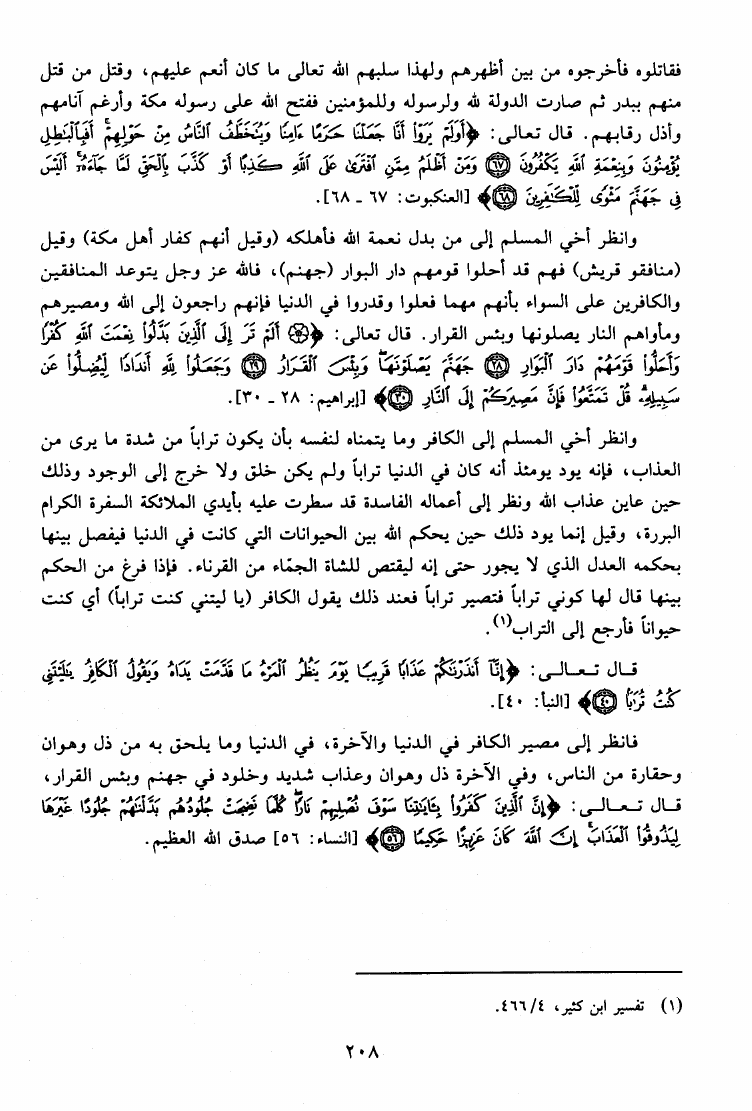 فقاتلوه فأخرجوه من بين أظهرهم ولهذا سلبهم الله تعالى ما كان أنعم عليهم، وقتل من قتل
منهم ببدر ثم صارت الدولة لله ولرسوله وللمؤمنين ففتح الله على رسوله مكة وأرغم آنامهم
وأذل رقابهم. قال تعالى: ﴿أَوَلَمْ يَرَوْا أَنَّا جَعَلْنَا حَرَمًا ءَامِنًا وَيُتَخَطَّفُ النَّاسُ مِنْ حَوْلِهِمْ أَفَبِالْبَاطِلِ
يُؤْمِنُونَ وَبِنِعْمَةِ اللَّهِ يَكْفُرُونَ ﴿٦٧﴾ وَمَنْ أَظْلَمُ مِمَّنِ افْتَرَىٰ عَلَى اللَّهِ كَذِبًا أَوْ كَذَّبَ بِالْحَقِّ لَمَّا جَاءَهُ أَلَيْسَ
فِي جَهَنَّمَ مَثْوًى لِلْكَافِرِينَ ﴿٦٨﴾﴾ [العنكبوت: ٦٧ ـ ٦٨].
وانظر أخي المسلم إلى من بدل نعمة الله فأهلكه (وقيل أنهم كفار أهل مكة) وقيل
(منافقو قريش) فهم قد أحلوا قومهم دار البوار (جهنم)، فالله عز وجل يتوعد المنافقين
والكافرين على السواء بأنهم مهما فعلوا وقدروا في الدنيا فإنهم راجعون إلى الله ومصيرهم
ومأواهم النار يصلونها وبئس القرار. قال تعالى: ﴿۞ أَلَمْ تَرَ إِلَى الَّذِينَ بَدَّلُوا نِعْمَتَ اللَّهِ كُفْرًا
وَأَحَلُّوا قَوْمَهُمْ دَارَ الْبَوَارِ ﴿٢٨﴾ جَهَنَّمَ يَصْلَوْنَهَا وَبِئْسَ الْقَرَارُ ﴿٢٩﴾ وَجَعَلُوا لِلَّهِ أَندَادًا لِيُضِلُّوا عَن
سَبِيلِهِ قُلْ تَمَتَّعُوا فَإِنَّ مَصِيرَكُمْ إِلَى النَّارِ ﴿٣٠﴾﴾ [إبراهيم: ٢٨ ـ ٣٠].
وانظر أخي المسلم إلى الكافر وما يتمناه لنفسه بأن يكون تراباً من شدة ما يرى من
العذاب، فإنه يود يومئذ أنه كان في الدنيا تراباً ولم يكن خلق ولا خرج إلى الوجود وذلك
حين عاين عذاب الله ونظر إلى أعماله الفاسدة قد سطرت عليه بأيدي الملائكة السفرة الكرام
البررة، وقيل إنما يود ذلك حين يحكم الله بين الحيوانات التي كانت في الدنيا فيفصل بينها
بحكمه العدل الذي لا يجور حتى إنه ليقتص للشاة الجمّاء من القرناء. فإذا فرغ من الحكم
بينها قال لها كوني تراباً فتصير تراباً فعند ذلك يقول الكافر (يا ليتني كنت تراباً) أي كنت
حيواناً فأرجع إلى التراب(١).
قال تعالى: ﴿إِنَّا أَنذَرْنَاكُمْ عَذَابًا قَرِيبًا يَوْمَ يَنظُرُ الْمَرْءُ مَا قَدَّمَتْ يَدَاهُ وَيَقُولُ الْكَافِرُ يَلَيْتَنِي
كُنتُ تُرَابًا ﴿٤٠﴾﴾ [النبأ: ٤٠].
فانظر إلى مصير الكافر في الدنيا والآخرة، في الدنيا وما يلحق به من ذل وهوان
وحقارة من الناس، وفي الآخرة ذل وهوان وعذاب شديد وخلود في جهنم وبئس القرار،
قال تعالى: ﴿إِنَّ الَّذِينَ كَفَرُوا بِئَايَاتِنَا سَوْفَ نُصْلِيهِمْ نَارًا كُلَّمَا نَضِجَتْ جُلُودُهُم بَدَّلْنَاهُمْ جُلُودًا غَيْرَهَا
لِيَذُوقُوا الْعَذَابَ إِنَّ اللَّهَ كَانَ عَزِيزًا حَكِيمًا ﴿٥٦﴾﴾ [النساء: ٥٦] صدق الله العظيم.
(١) تفسير ابن كثير، ٤/٤٦٦.
٢٠٨